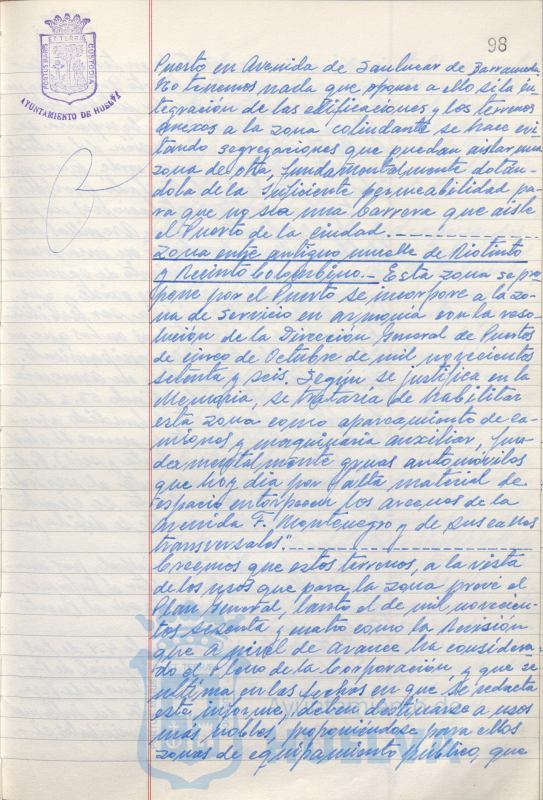 98
PORTUS MARIS ET TERRAE CUSTODIA
AYUNTAMIENTO DE HUELVA
Puerto en Avenida de Sanlucar de Barrameda.
No tenemos nada que oponer a ello si la in-
tegración de las edificaciones y los terrenos
anexos a la zona colindante se hace evi-
tando segregaciones que puedan aislar una
zona de otra, fundamentalmente dotán-
dola de la suficiente permeabilidad pa-
ra que no sea una barrera que aisle
el Puerto de la ciudad.
Zona entre antiguo muelle de Riotinto
y Recinto Colombino.- Esta zona se pro-
pone por el Puerto se incorpore a la zo-
na de Servicio en armonia con la reso-
lución de la Dirección General de Puertos
de cinco de Octubre de mil novecientos
setenta y seis. Según se justifica en la
Memoria, se trataria de habilitar
esta zona como aparcamiento de ca-
miones y maquinaria auxiliar, fun-
damentalmente gruas automóviles
que hoy dia por falta material de
espacio entorpecen los accesos de la
Avenida F. Montenegro y de sus calles
transversales".
Creemos que estos terrenos, a la vista
de los usos que para la zona prevé el
Plan General, tanto el de mil novecien-
tos sesenta y cuatro como la Revisión
que a nivel de avance ha considera-
do el Pleno de la Corporación y que se
ultima en las fechas en que se redacta
este informe, deben destinarse a usos
mas nobles, proponiéndose para ellos
zonas de equipamiento público, que